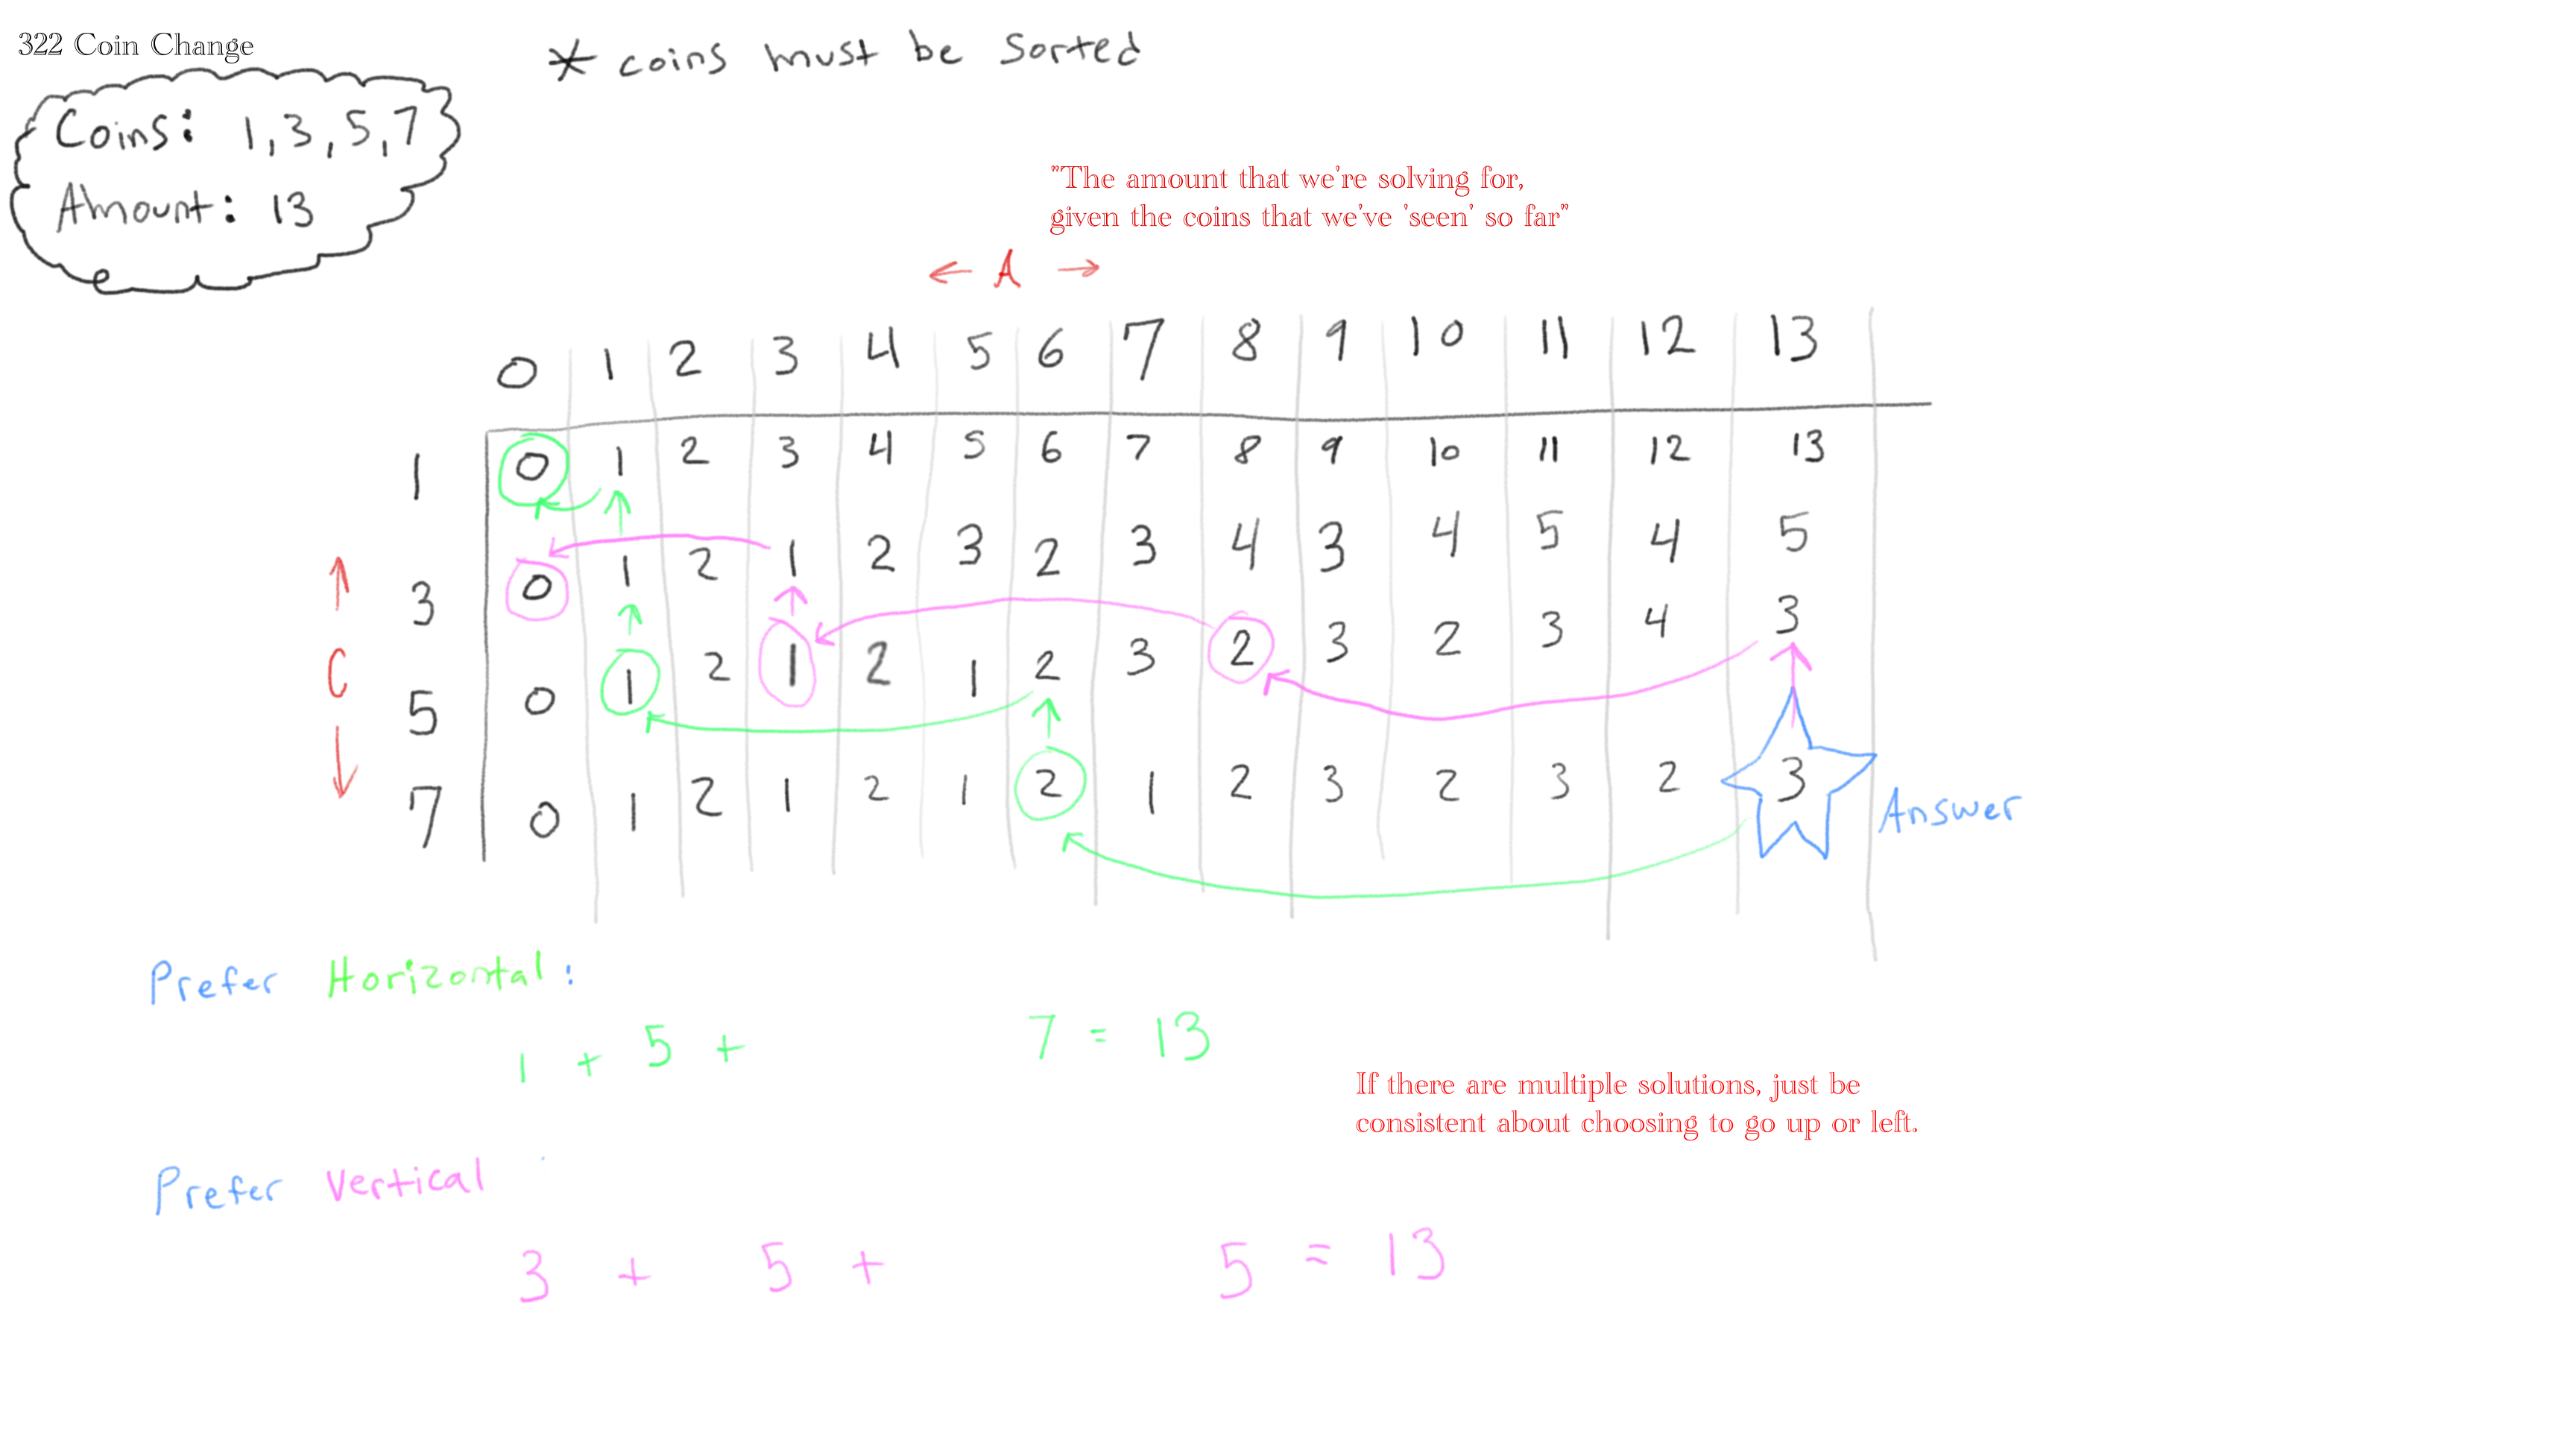 322 Coin Change
* coins must be sorted
Coins: 1,3,5,7
Amount: 13
"The amount that we're solving for,
given the coins that we've 'seen' so far"
← A →
0 1 2 3 4 5 6 7 8 9 10 11 12 13
1 0 1 2 3 4 5 6 7 8 9 10 11 12 13
3 0 1 2 1 2 3 2 3 4 3 4 5 4 5
C
5 0 1 2 1 2 1 2 3 2 3 2 3 4 3
7 0 1 2 1 2 1 2 1 2 3 2 3 2 3
Answer
Prefer Horizontal:
1 + 5 + 7 = 13
If there are multiple solutions, just be
consistent about choosing to go up or left.
Prefer Vertical
3 + 5 + 5 = 13